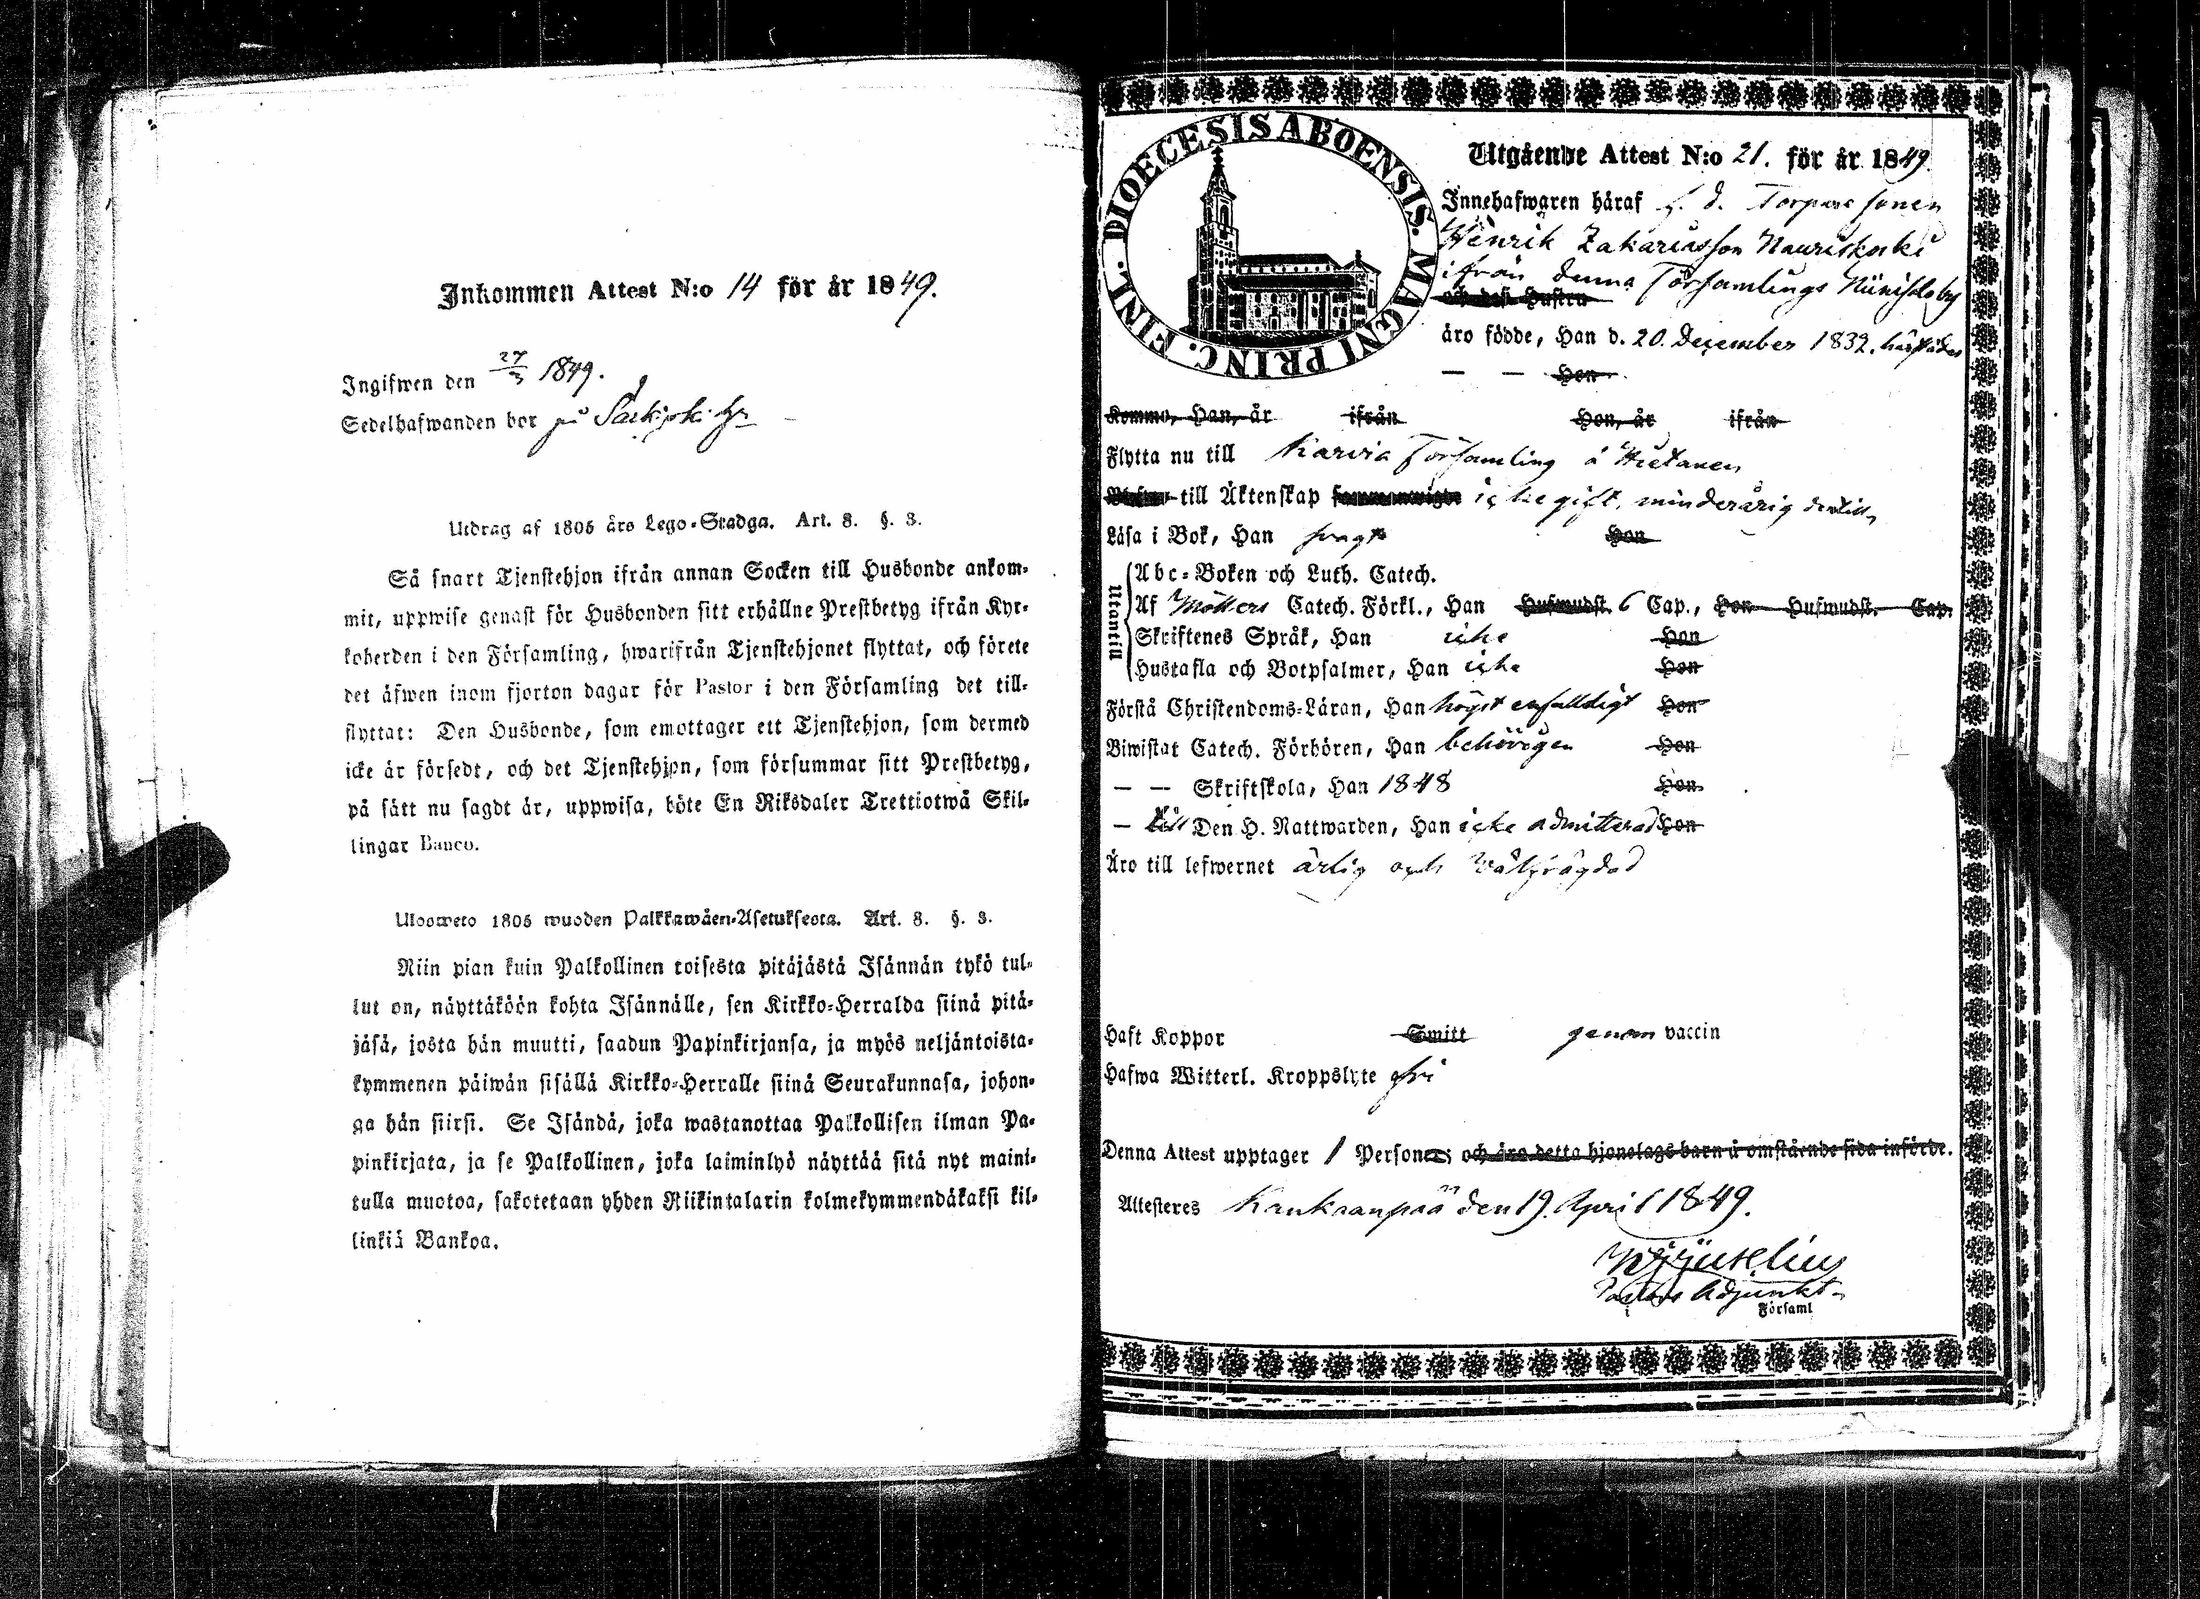 Inkommen Attest N:o 14 för år 1849.
Ingifwen den 27/3 1849.
Sedelhafwanden bor på
Utdrag af 1805 års Lego-Stadga. Art. 8. §. 3.
Så snart Tjenstehjon ifrån annan Socken till Husbonde ankom-
mit, uppwise genast för Husbonden sitt erhållne Prestbetyg ifrån Kyr-
koherden i den Församling, hwarifrån Tjenstehjonet flyttat, och förete
det äfwen inom fjorton dagar för Pastor i den Församling det till-
flyttat: Den Husbonde, som emottager ett Tjenstehjon, som dermed
icke är försedt, och det Tjenstehjon, som försummar sitt Prestbetyg,
på sätt nu sagdt är, uppwisa, böte En Riksdaler Trettiotwå Skil-
lingar Banco.
Ulosweto 1805 wuoden Palkkawäen-Asetuksesta. Art. 8. §. 3.
Niin pian kuin Palkollinen toisesta pitäjästä Isännän tykö tul-
lut on, näyttäköön kohta Isännälle, sen Kirkko-Herralda siinä pitä-
jäsä, josta hän muutti, saadun Papinkirjansa, ja myös neljäntoista-
kymmenen päiwän sisällä Kirkko-Herralle siinä Seurakunnasa, johon-
ga hän siirsi. Se Isändä, joka wastanottaa Palkollisen ilman Pa-
pinkirjata, ja se Palkollinen, joka laiminlyö näyttää sitä nyt maini-
tulla muotoa, sakotetaan yhden Riikintalarin kolmekymmendäkaksi kil-
linkiä Bankoa.
DIOECESIS ABOENSIS. MAGNI PRINC. FINL.
Utgående Attest N:o 21. för år 1849.
Innehafwaren häraf f. d. Torpare sonen
Henrik Zakariasson Nauriskoski
ifrån denna Församlings
och dess Hustru
äro födde, Han d. 20. December 1832. härstädes
— — Hon
Komma, Han, år ifrån Hon, år ifrån
Flytta nu till Karvia Församling å Hietanen
till Äktenskap icke gift, minderårig dertill,
Läsa i Bok, Han svagt Hon
Utantill
Abc-Boken och Luth. Catech.
Af Möllers Catech. Förkl., Han Hufwudst. 6 Cap., Hon Hufwudst. Cap.
Skriftenes Språk, Han icke Hon
Hustafla och Botpsalmer, Han icke Hon
Förstå Christendoms-Läran, Han högst enfaldigt Hon
Biwistat Catech. Förhören, Han behörigen Hon
— — Skriftskola, Han 1848 Hon
— till Den H. Nattwarden, Han icke admitterad Hon
Äro till lefwernet ärlig och välfrägdad
Haft Koppor Smitt genom vaccin
Hafwa Witterl. Kroppslyte fri
Denna Attest upptager 1 Personer; och äro detta hjonelags barn å omstående sida införde.
Attesteres Kankaanpää den 19. April 1849.
Juselius
Pastors Adjunkt
i Församl